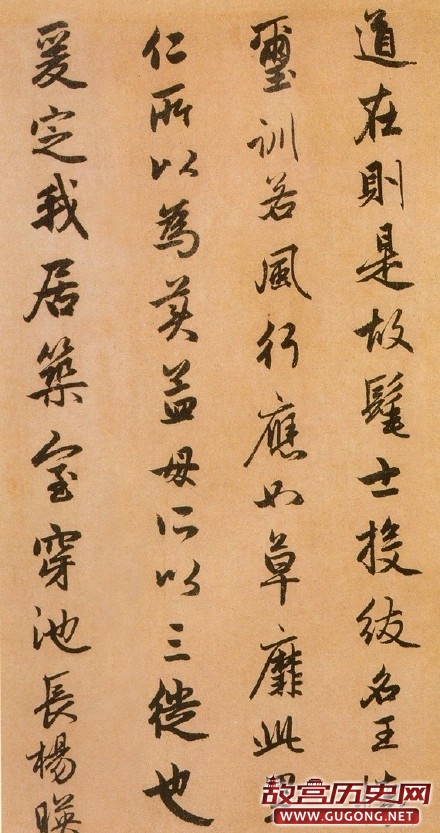 道在則是故髦士投紱名王懷
璽訓若風行應如草靡此里
仁所以為美孟母所以三徙也
爰定我居築室穿池長楊暎
故宫历史网
WWW.GUGONG.NET